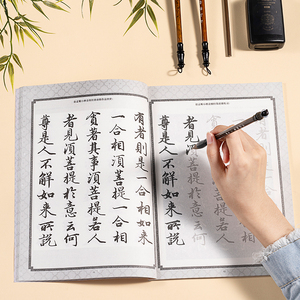 者見湏菩提於意云何
尊是人不解如來所說
有者則是一合相如來
一合相湏菩提一合相
貪著其事湏菩提若人
者見湏菩提於意云何
尊是人不解如來所說